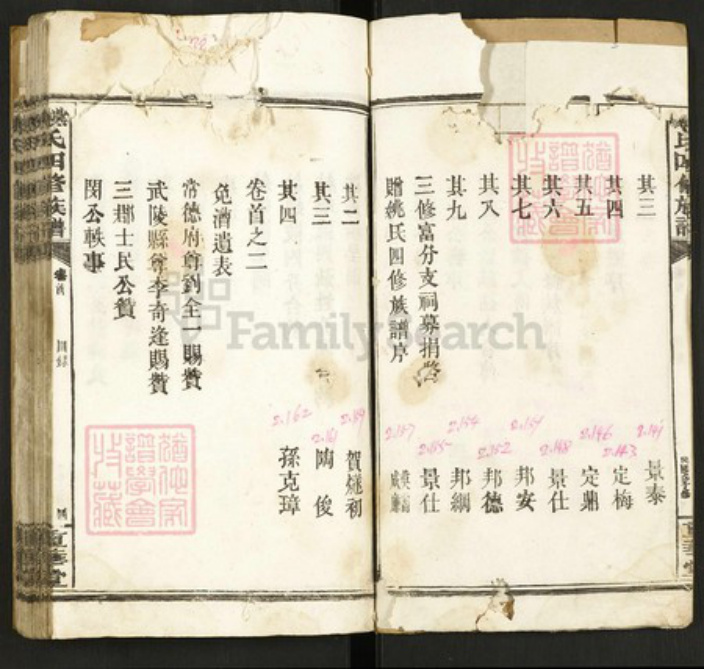 其三 景泰
其四 定梅
其五 定鼎
其六 景仕
其七 邦安
其八 邦德
其九 邦綱
三修富分支祠募捐 景仕
贈姚氏四修族譜序
其二 賀燧初
其三 陶俊
其四 孫克璋
卷首之二
免漕遺表
常德府尊劉全一賜贊
武陵縣尊李奇逢賜贊
三鄉士民公贊
閔公軼事
氏四修族譜
卷首
目錄
重華堂
2.141
2.143
2.146
2.148
2.151
2.152
2.154
2.155
2.157
2.159
2.161
2.162
FamilySearch